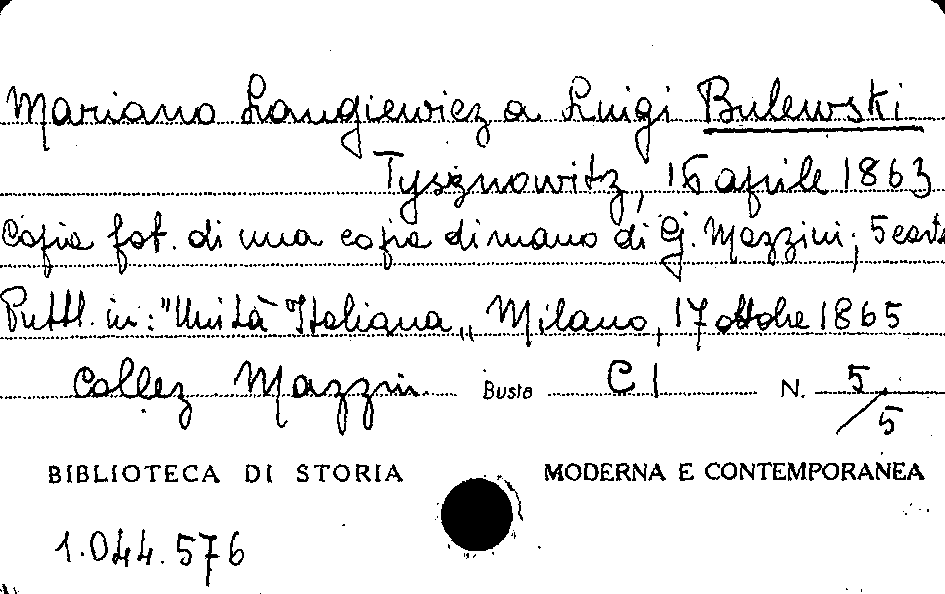 Mariano Langiewicz a Luigi Bulewski
Tysznowitz, 16 aprile 1863
Copia fot. di una copia di mano di G. Mazzini; 5 carte
Pubbl. in: "Unità Italiana„ Milano, 17 ottobre 1865
Collez Mazzini Busta C I N. 5/5
BIBLIOTECA DI STORIA MODERNA E CONTEMPORANEA
1.044.576